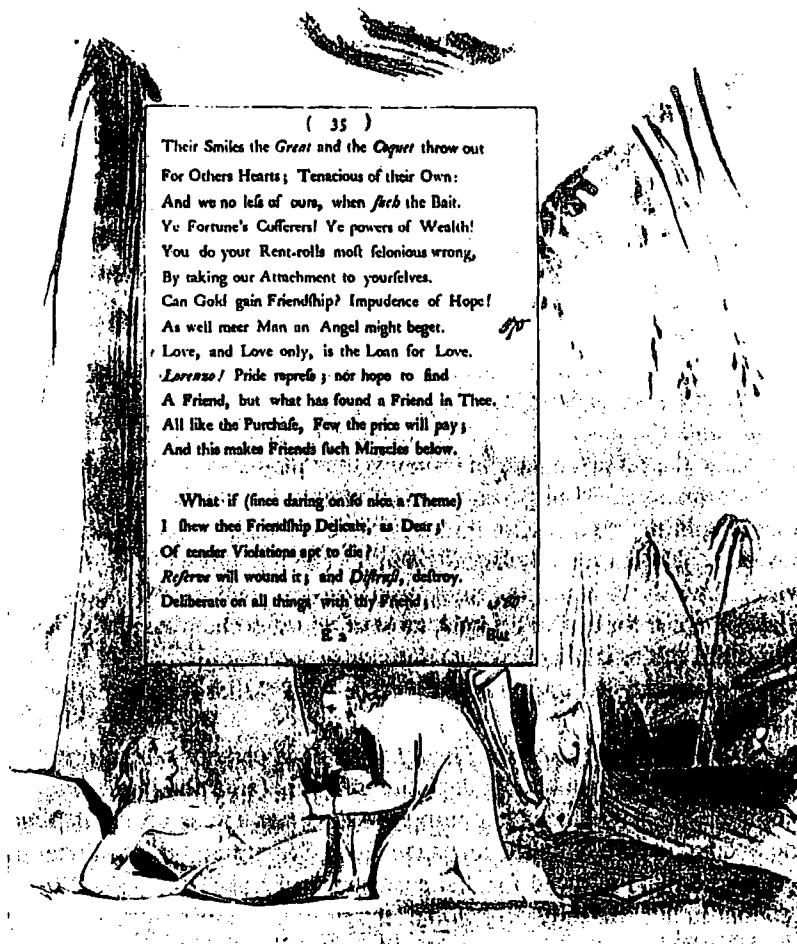 ( 35 )
Their Smiles the Great and the Coquet throw out
For Others Hearts; Tenacious of their Own:
And we no leſs of ours, when ſuch the Bait.
Ye Fortune's Cofferers! Ye powers of Wealth!
You do your Rent-rolls moſt felonious wrong,
By taking our Attachment to yourſelves.
Can Gold gain Friendſhip? Impudence of Hope!
As well meer Man an Angel might beget.
570
Love, and Love only, is the Loan for Love.
Lorenzo! Pride repreſs; nor hope to find
A Friend, but what has found a Friend in Thee.
All like the Purchaſe, Few the price will pay;
And this makes Friends ſuch Miracles below.
What if (ſince daring on ſo nice a Theme)
I ſhew thee Friendſhip Delicate, as Dear;
Of tender Violations apt to die?
Reſerve will wound it; and Diſtruſt, deſtroy.
Deliberate on all things with thy Friend;
But